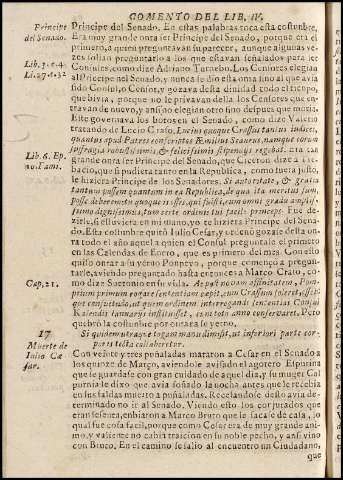 COMENTO DEL LIB. IV.
Principe del Senado.
Principe del Senado. En estas palabras toca esta costunbre.
Era muy grande onra ser Principe del Senado, porque era el
primero, a quien preguntavan su parecer, aunque algunas ve-
zes solian preguntarlo a los que estavan señalados para ser
Lib. 3. c. 4.
Consules, como dize Adriano Turnebo. Los Censores elegian
Li. 27. c. 32
al Principe nel Senado, y nunca se dio esta onra sino al que avia
sido Consul, o Censor, y gozava desta dinidad todo el tienpo,
que bivia, porque no le privavan della los Censores que en-
travan de nuevo, y ansi no elegian otro sino despues que moria.
Este governava los botos en el Senado, como dize Valerio
tratando de Lucio Craso, Lucius quoque Crassus tantus
quantus apud Patres conscriptos Æmilius Scaurus, namque eorum
suffragia robustissimis, & felicissimis
regebat. Era tan
Lib. 6. Ep.
grande onra ser Principe del Senado, que Ciceron dize a Tre-
bacio, que si pudiera tanto en la Republica, como fuera justo,
le hiziera Principe de los Senadores. Si autoritate, & gratia
tantum possem quantum in ea Republica, de qua ita meritus sum,
posse deberem
dignissimus, tum certe ordinis tui facile princeps. Que de-
ziele, si estuviera en mi mano, yo te hiziera Principe del Sena-
do. Esta costunbre quitò Julio Cesar, y ordenò gozase desta on-
ra todo el año aquel a quien el Consul preguntase el primero
en las Calendas de Enero, que es primero del mes. Con esto
quiso onrar a su yerno Ponpeyo, porque començò a pregun-
tarle, aviendo preguntado hasta entonces a Marco Craso, co-
Cap. 21.
mo dize Suetonio en su vida. Ac post novam affinitatem, Pom-
peium primum rogare sententiam cepit, cum Crassum soleret, essét-
que consuetudo, ut quem ordinem interrogandi sententias Consul
Kalendis Ianuarijs instituisset, eum toto anno conservaret. Pero
quebrò la costunbre por onrar a su yerno.
17
Si quidem utraque togam manu dimisit, ut inferiori parte cor-
poris tecta collaberetur.
Muerte de Iulio Ce sar.
Con veynte y tres puñaladas mataron a Cesar en el Senado a
los quinze de Março, aviendole avisado el agorero Espurina
que se guardase con gran cuidado de aquel dia, y su muger Cal
purnia le dixo que avia soñado la noche antes que le recebia
en sus faldas muerto a puñaladas. Recelandose desto avia de-
terminado no ir al Senado. Viendo esto los conjurados que
eran sesenta, enbiaron a Marco Bruto que le sacase de casa, lo
qual fue cosa facil, porque como Cesar era de muy grande ani-
mo, y valiente no cabia traicion en su noble pecho, y ansi vino
con Bruto. En el camino se salio al encuentro un Ciudadano,
que